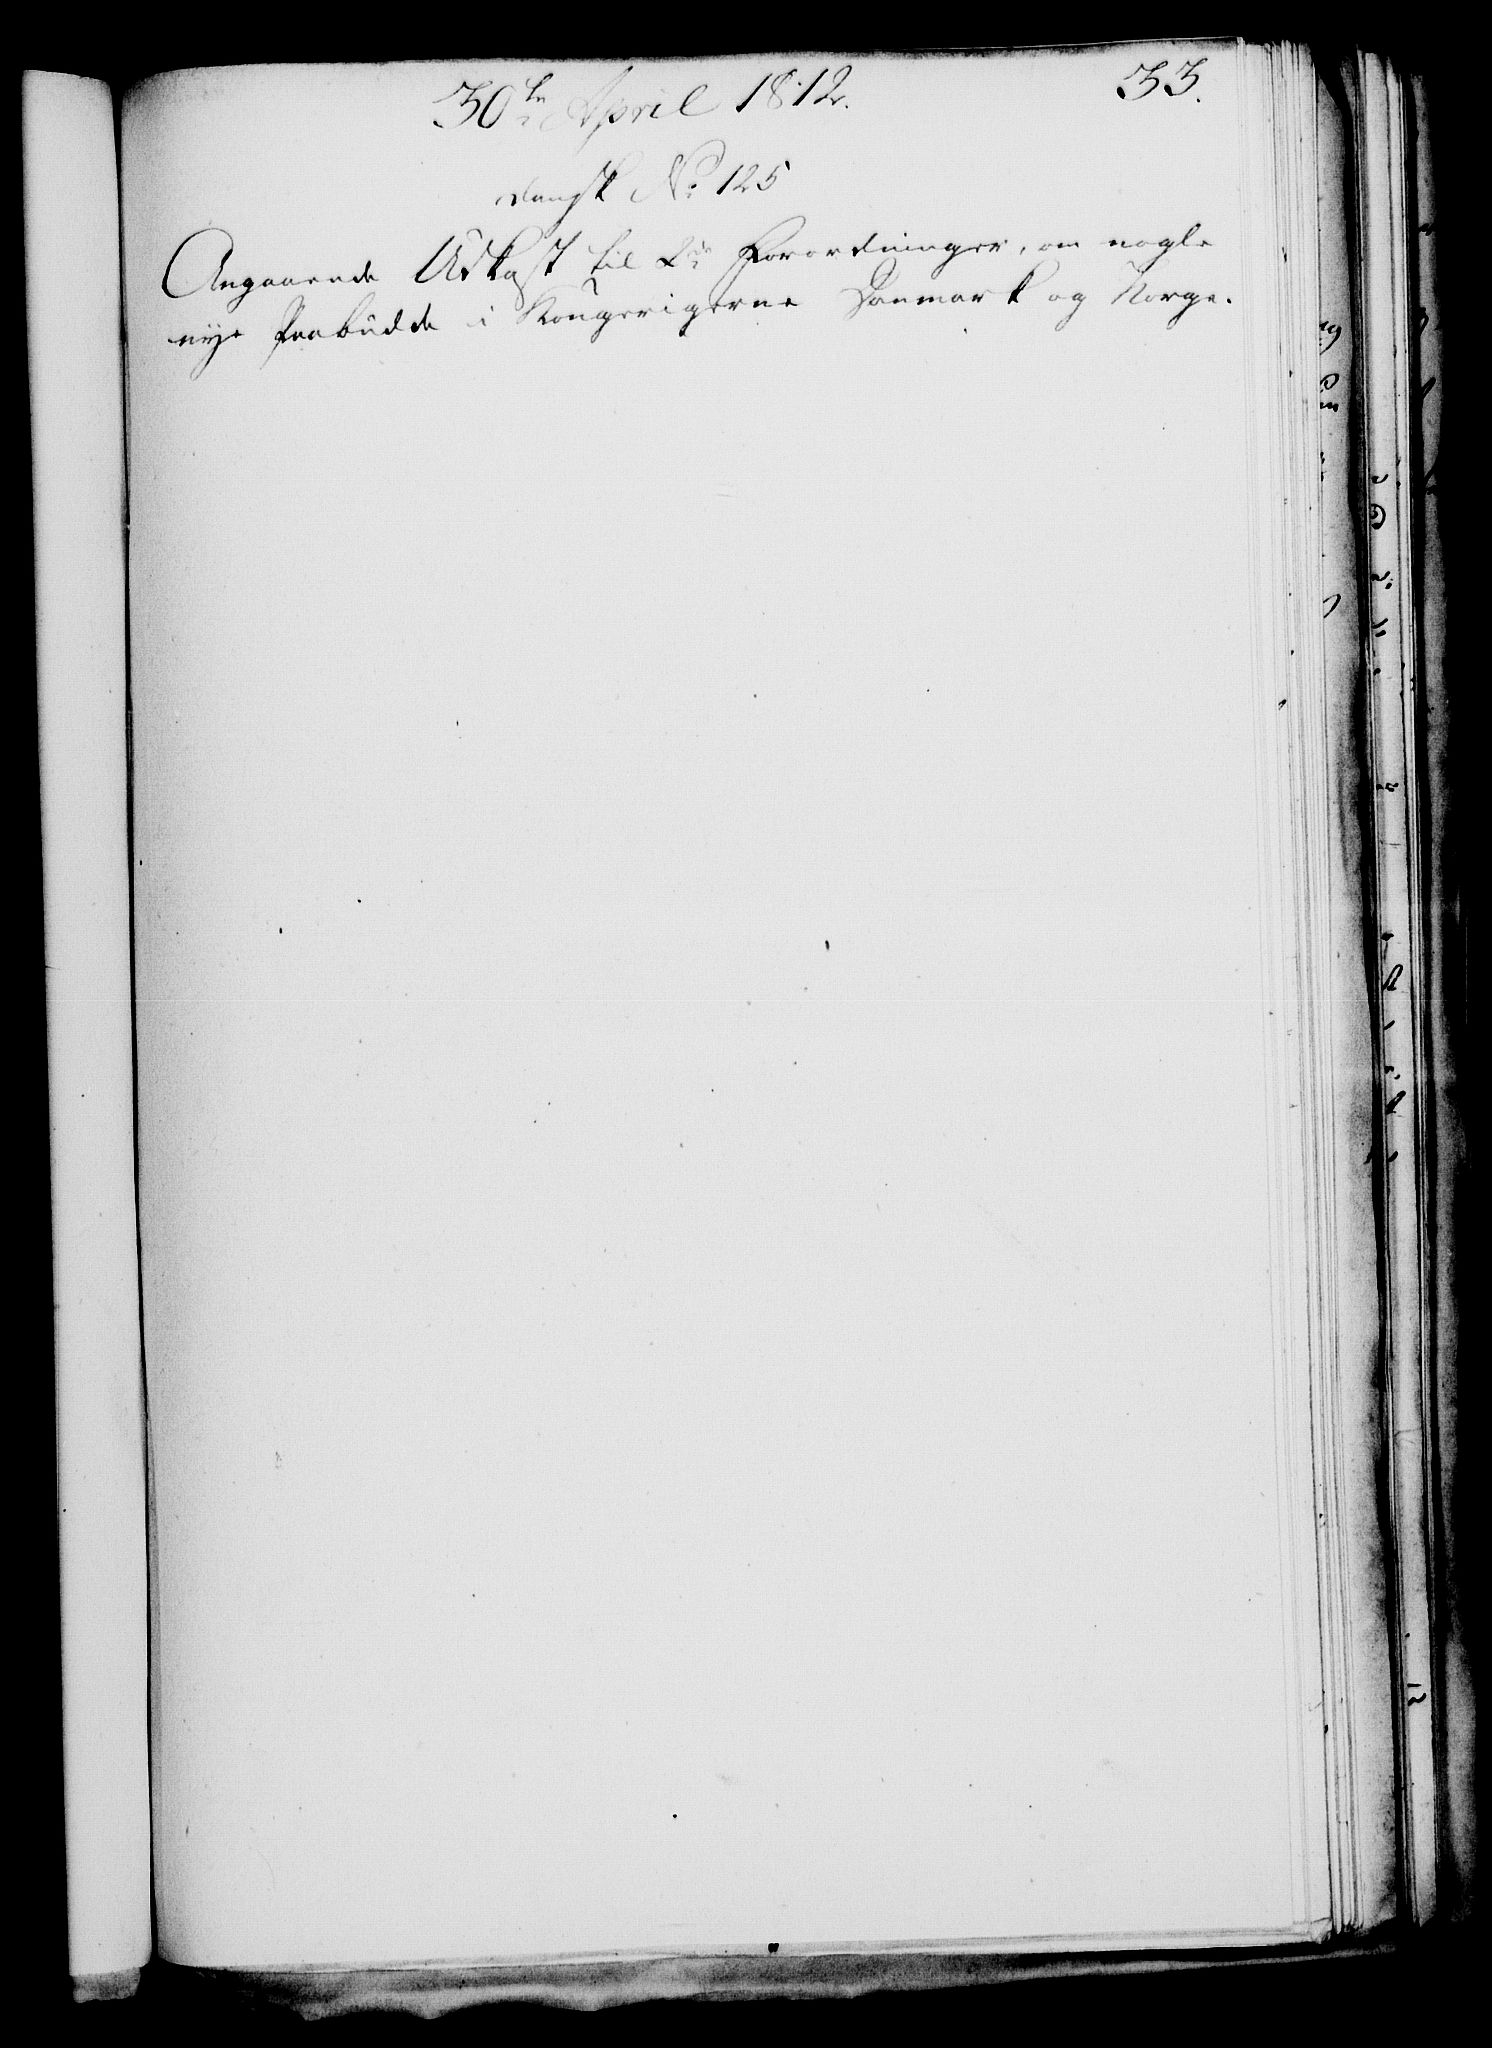 30te April 1812.
33.
dansk No 125
Angaaende Udkast til 2de Forordninger, om nogle
nye Paabudde i Kongerigerne Danmark og Norge.